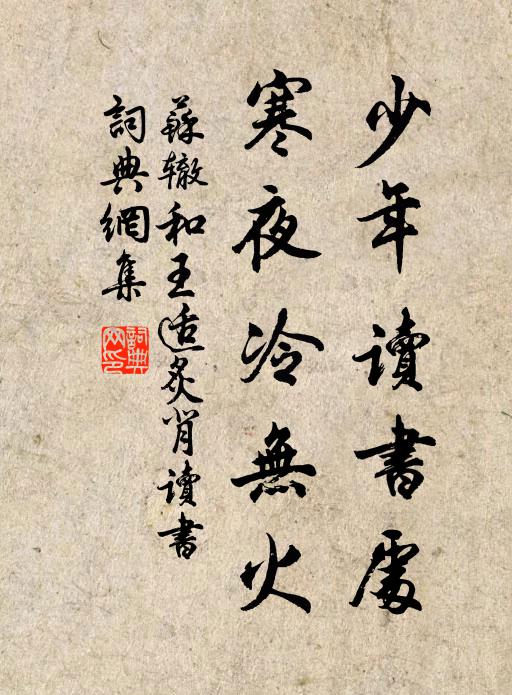 少年讀書處
寒夜冷無火
蘇辙和王适炙肖讀書
詞典網集
詞典網印